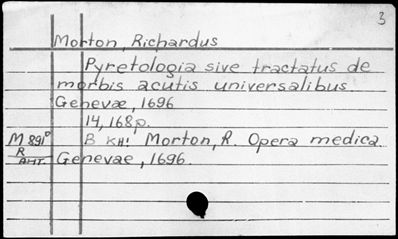 3
Morton, Richardus
Pyretologia sive tractatus de
morbis acutis universalibus
Genevæ, 1696
14, 168p.
M 891° В кн: Morton, R. Opera medica.
R
АНТ. Genevae, 1696.